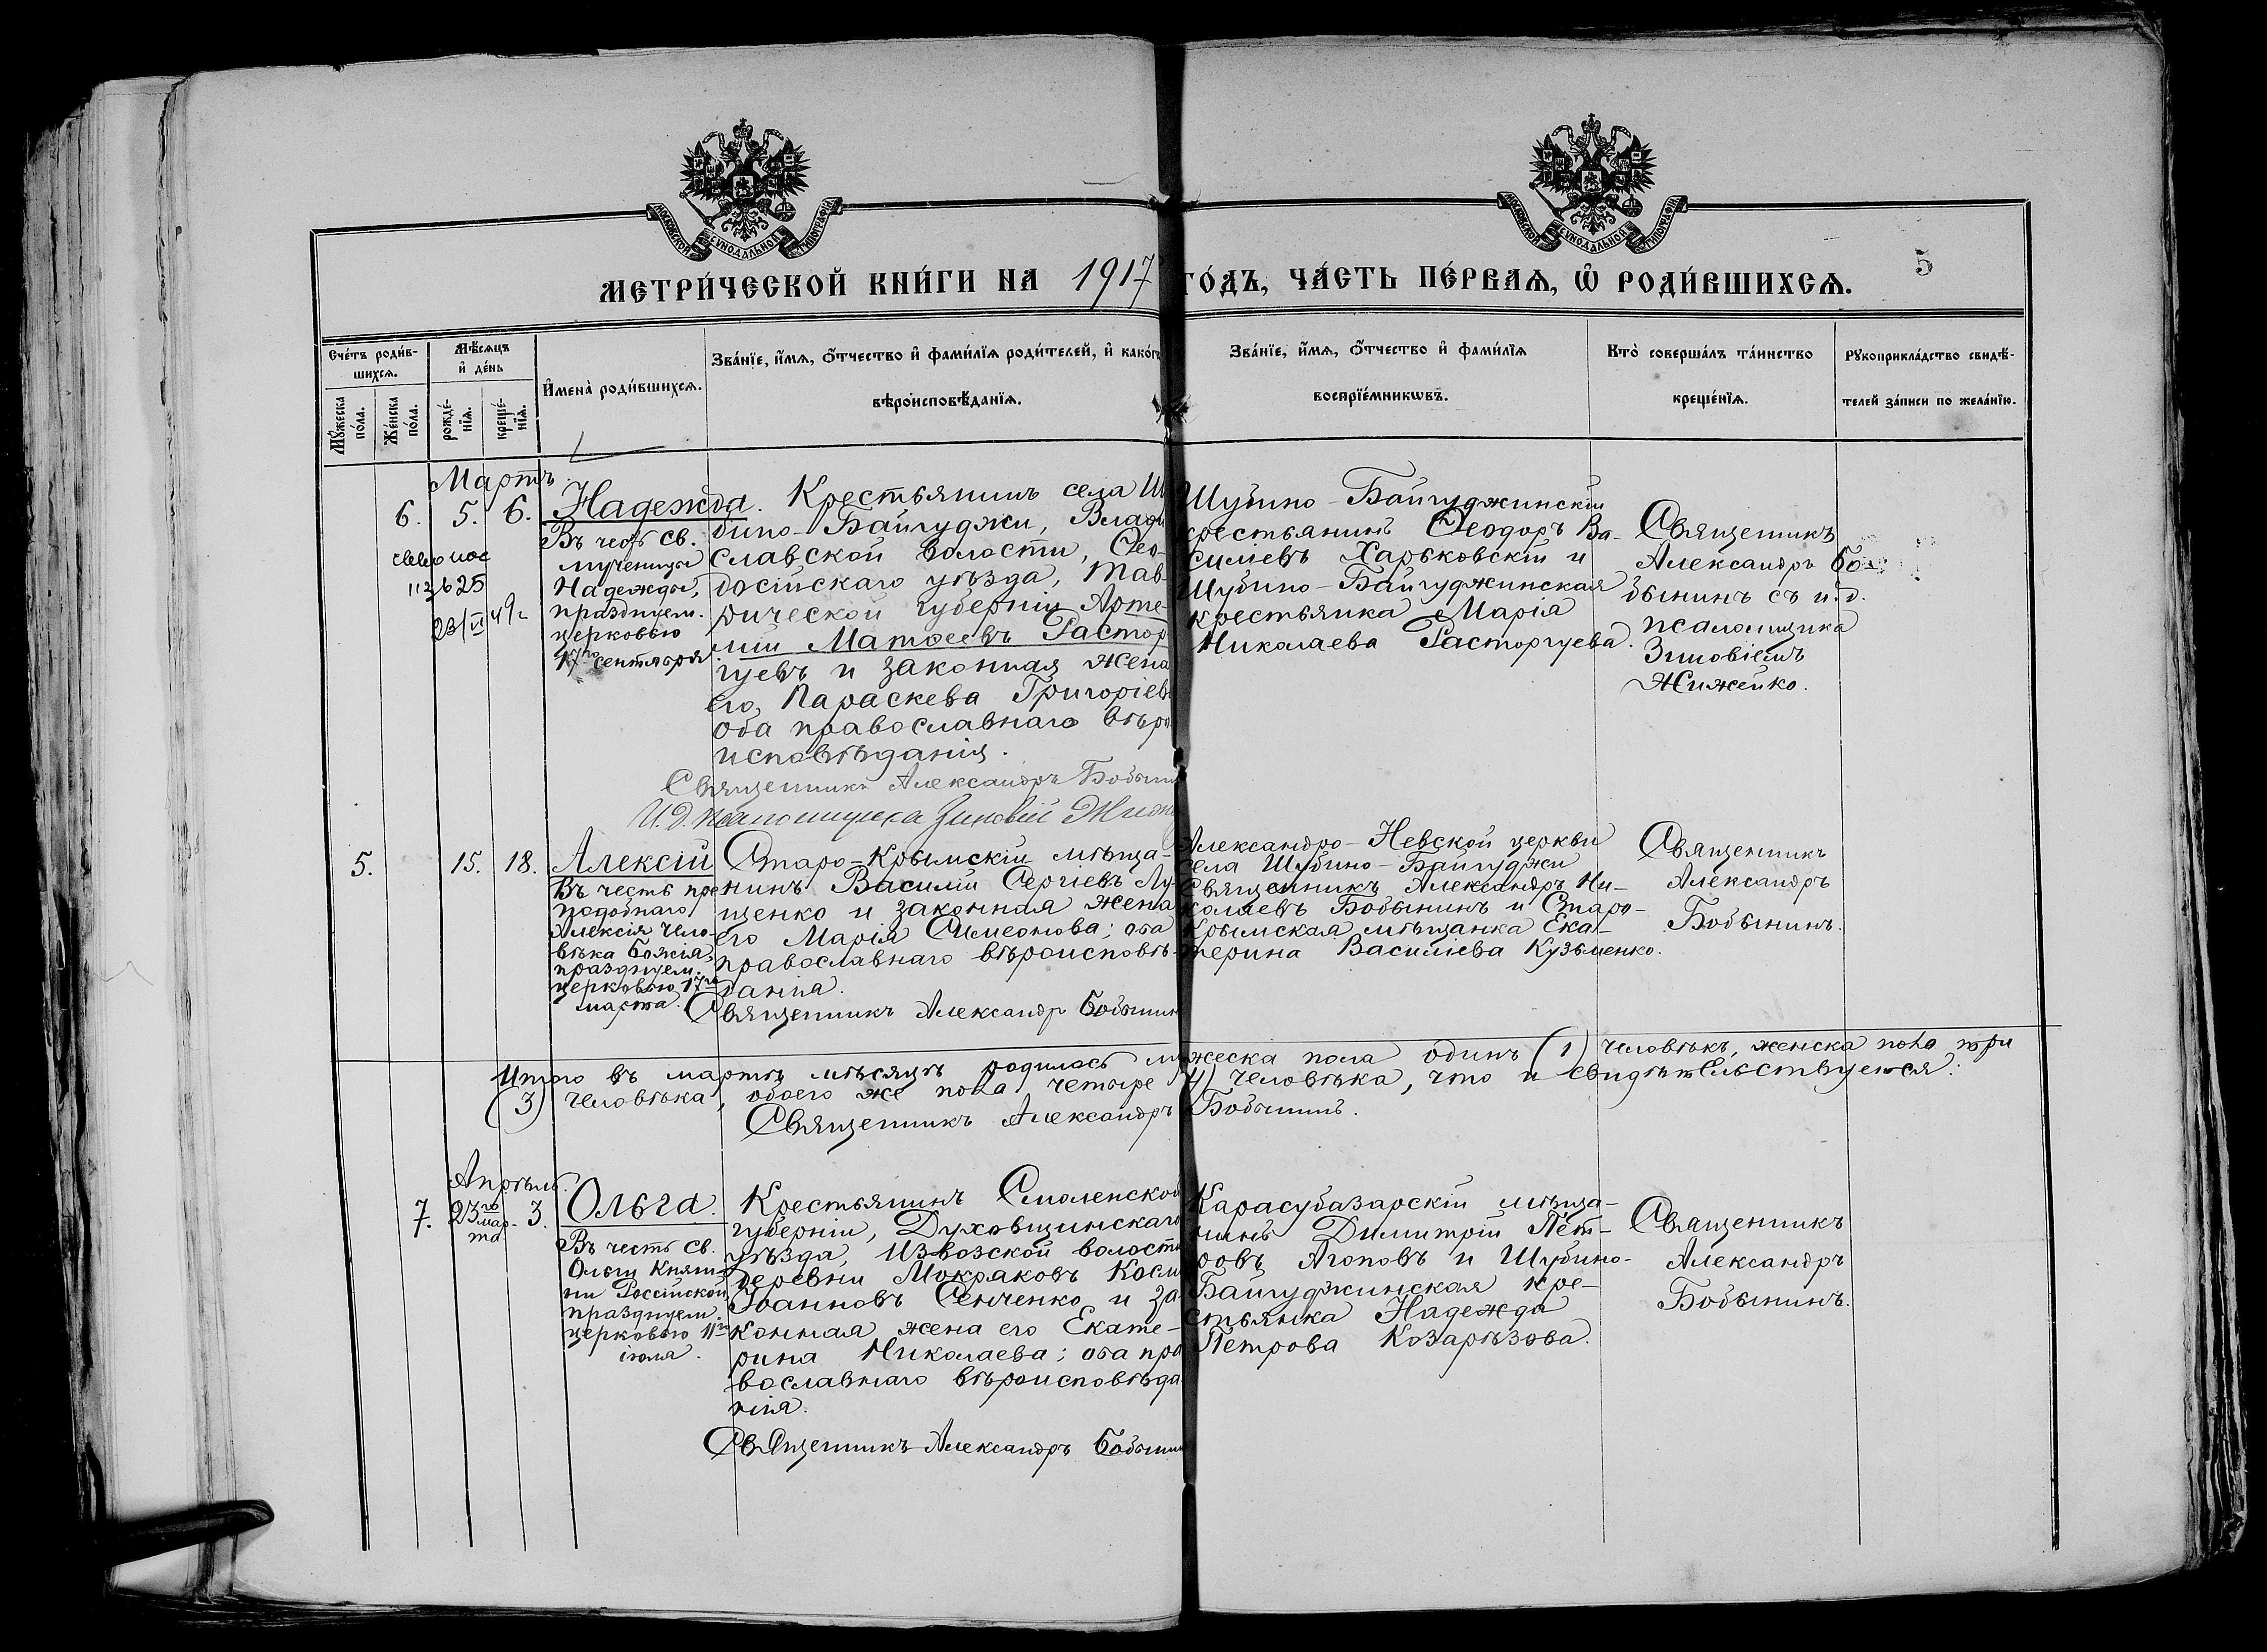 МОСКОВСКОЙ СѴНОДАЛЬНОЙ ТИПОГРАФІИ
МОСКОВСКОЙ СѴНОДАЛЬНОЙ ТИПОГРАФІИ
5
МЕТРИ́ЧЕСКОЙ КНИ́ГИ НА 1917 ГО́ДЪ, ЧА́СТЬ ПЕ́РВАѦ, Ѡ҆ РОДИ́ВШИХСѦ.
Сче́тъ роди́в-
шихсѧ.
Мꙋ́жеска по́ла.
Же́нска по́ла.
Мѣ́сѧцъ и҆ де́нь
рожде́-нїѧ.
креще́-нїѧ.
И҆мена̀ роди́вшихсѧ.
Зва́нїе, и҆́мѧ, ѻ҆́тчество и҆ фами́лїѧ роди́телей, и҆ како́гѡ
вѣроисповѣ́данїѧ.
Зва́нїе, и҆́мѧ, ѻ҆́тчество и҆ фами́лїѧ
воспрїе́мникѡвъ.
Кто̀ соверша́лъ та́инство
креще́нїѧ.
Рꙋкоприкла́дство свидѣ́-
телей за́писи по жела́нїю.
Мартъ.
6. 5. 6.
112625
23/VI 49г
Надежда.
Въ честь св.
мученицы
Надежды,
празднуем.
церковью
17го сентября
Крестьянинъ села Шу
бино-Байгуджи, Влади
славской волости, Ѳео-
досійскаго уѣзда, Тав-
рической губерніи Арте-
мій Матѳеевъ Растор
гуевъ и законная жена
его Параскева Григоріев
оба православнаго вѣро
исповѣданія.
Священникъ Александръ Бобынин
И. д. псаломщика Зиновій Жиже
Шубино-Байгуджинскій
крестьянинъ Ѳеодоръ Ва-
силіевъ Харьковскій и
Шубино-Байгуджинская
крестьянка Марія
Николаева Расторгуева.
Священникъ
Александръ Бо-
бынинъ съ и.д.
псаломщика
Зиновіемъ
Жижейко.
5. 15. 18.
Алексій
Въ честь пре
подобнаго
Алексія чело-
вѣка Божія,
празднуем.
церковью 17го
марта.
Старо-Крымскій мѣща-
нинъ Василій Сергіевъ Лу-
щенко и законная жена
его Марія Симеонова; оба
православнаго вѣроисповѣ-
данія.
Священникъ Александр Бобынин
Александро-Невской церкви
села Шубино-Байгуджи
Священникъ Александръ Ни-
колаевъ Бобынинъ и Старо-
Крымская мѣщанка Ека-
терина Василіева Кузьменко.
Священникъ
Александръ
Бобынинъ.
Итого въ мартѣ мѣсяцѣ родилось мужеска пола одинъ (1) человѣкъ, женска пола три
(3) человѣка, обоего же пола четыре (4) человѣка, что и свидѣтельствуется:
Священникъ Александръ Бобынинъ.
Апрѣль.
7. 23го мар-та 3.
Ольга.
Въ честь св.
Ольги Княги-
ни Россійской
празднуем.
церковью 11го
іюля.
Крестьянинъ Смоленской
губерніи, Духовщинскаго
уѣзда, Извозской волости
деревни Мокряковъ Косм
Іоанновъ Сенченко и за
конная жена его Екате-
рина Николаева; оба пра
вославнаго вѣроисповѣда
нія.
Священникъ Александръ Бобынин
Карасубазарскій мѣща-
нинъ Димитрій Пет-
ровъ Агоповъ и Шубино-
Байгуджинская кре-
стьянка Надежда
Петрова Козарѣзова.
Священникъ
Александръ
Бобынинъ.